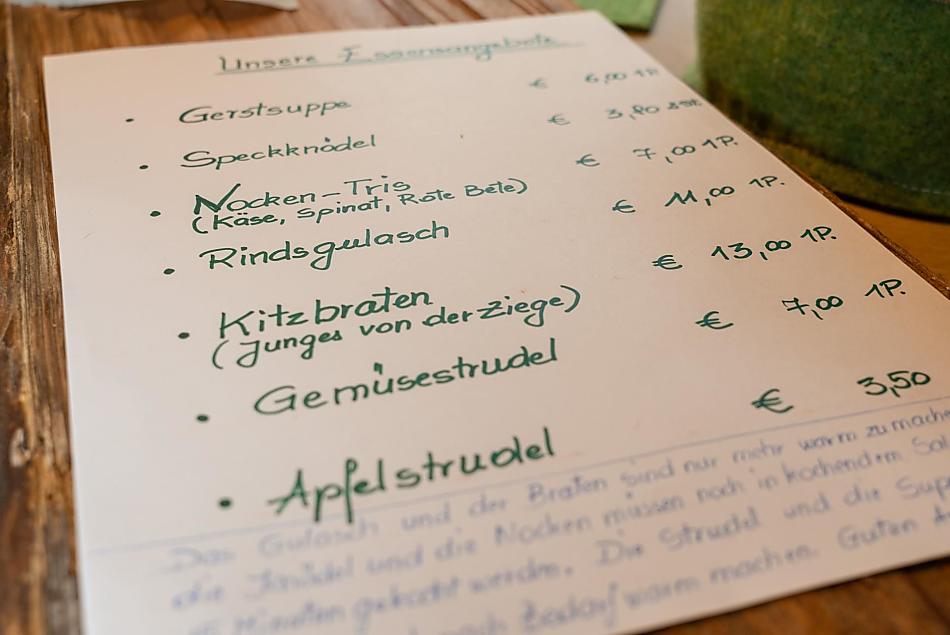 Unsere Essensangebote
• Gerstsuppe € 6,00 1P.
• Speckknödel € 3,80
• Nocken-Tris € 7,00 1P.
(Käse, Spinat, Rote Bete)
• Rindsgulasch € 11,00 1P.
• Kitzbraten € 13,00 1P.
(Junges von der Ziege)
• Gemüsestrudel € 7,00 1P.
• Apfelstrudel € 3,50
Das Gulasch und der Braten sind nur mehr warm zu mache
die Knödel und die Nocken müssen noch in kochendem Sal
Minuten gekocht werden. Die Strudel und die Sup
nach Bedarf warm machen. Guten A